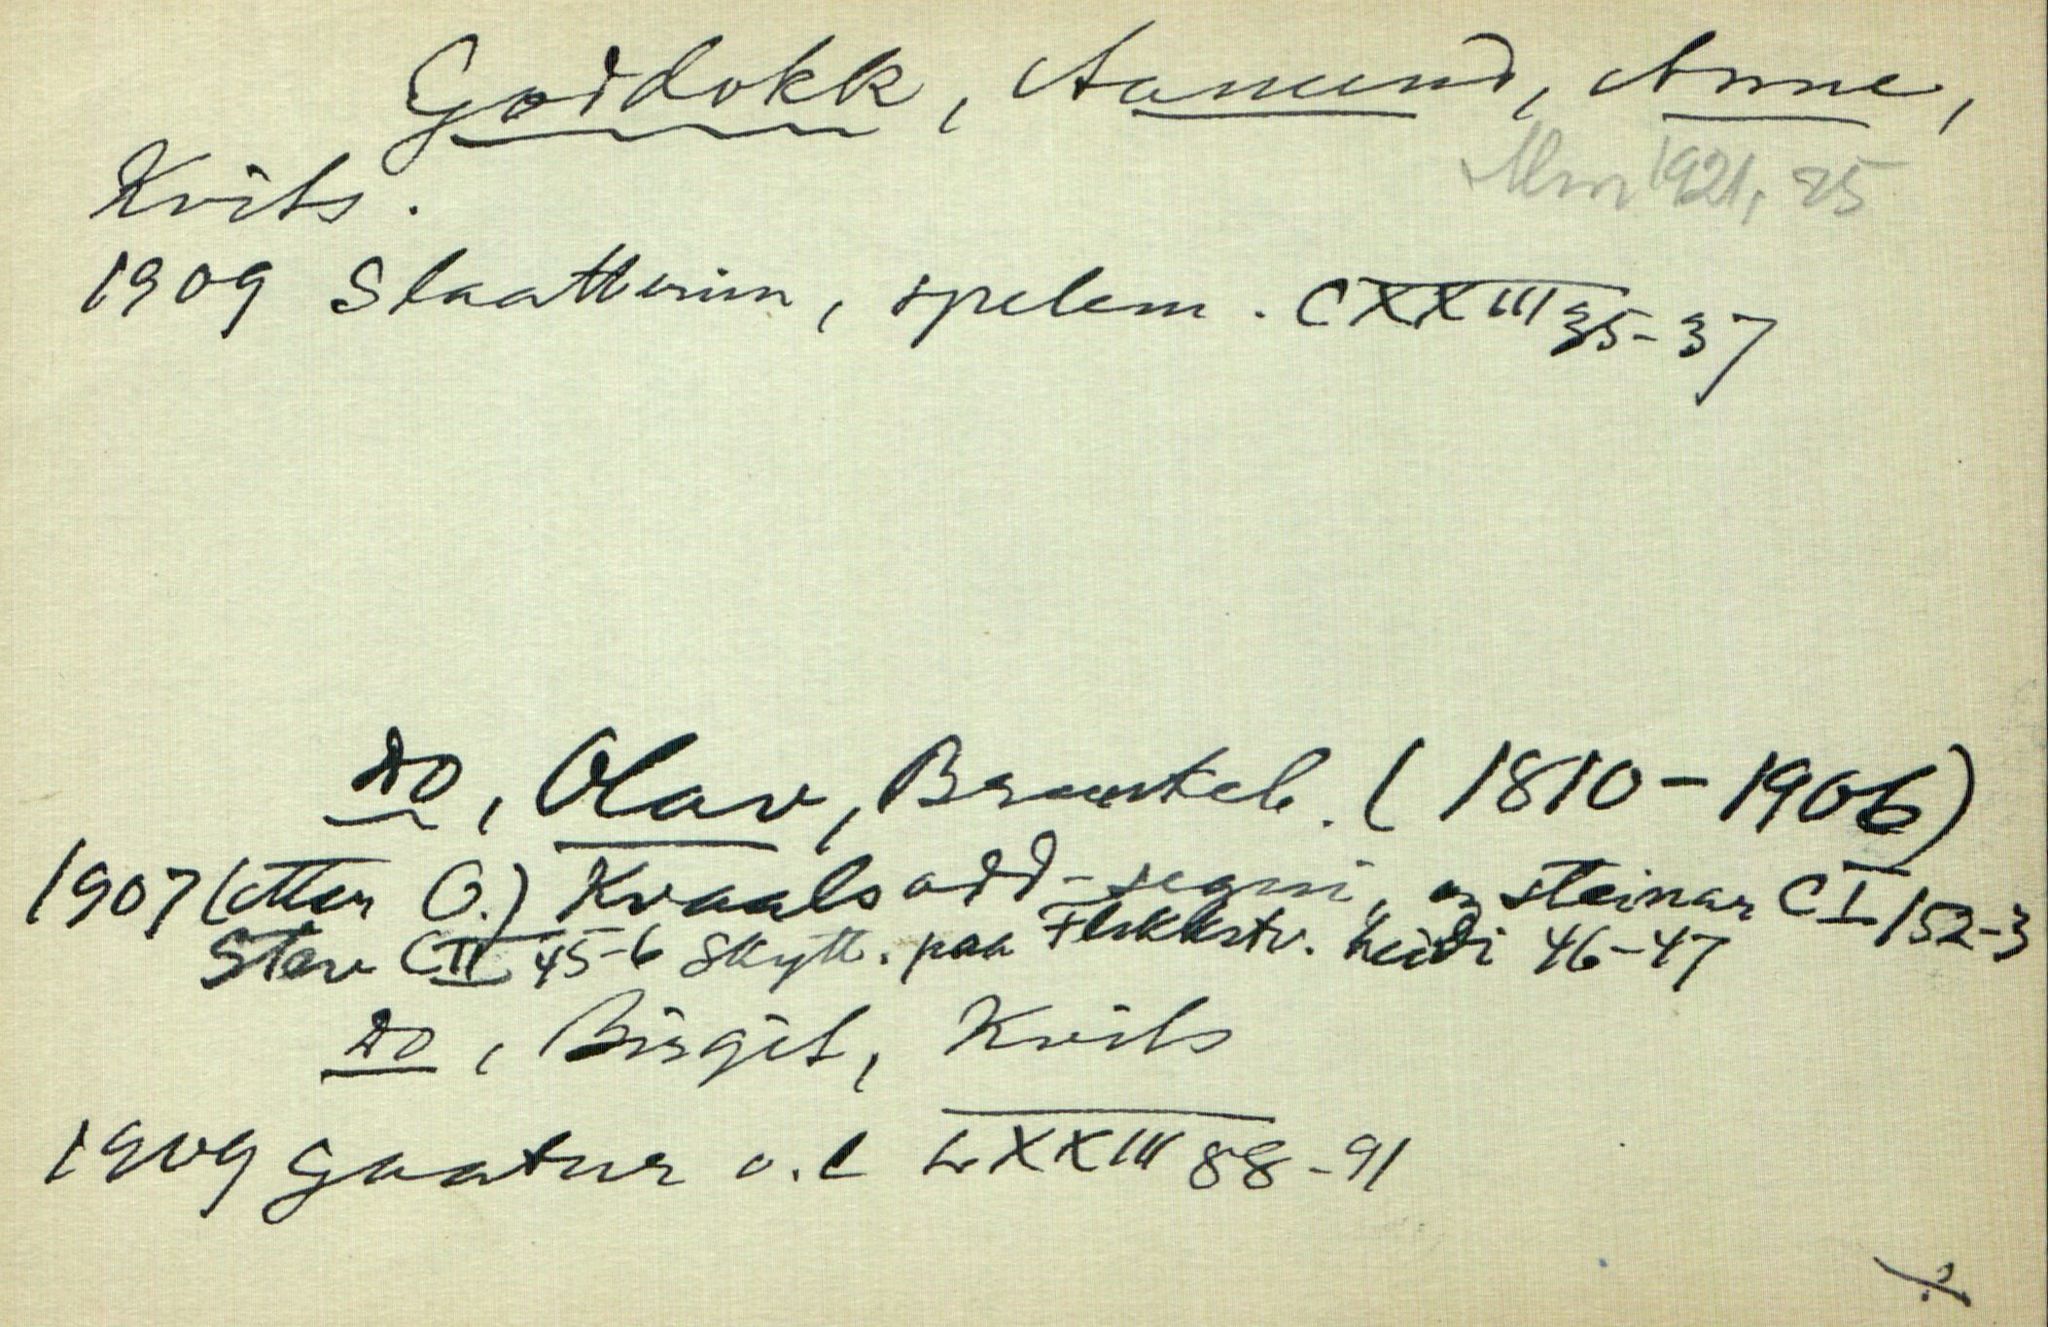 Goddokk, Aamund, Anne,
Kvits.
1921, 25
1909 Slaatterim, spelem. CXXIII 35-37
do, Olav, Brunkeb. (1810-1906)
1907 (etter O.) Kvaalsodd-segni, og steinar CI 152-3
Stev CII 45-6 Skytt. paa Flekkstv. heidi 46-47
do, Birgit, Kvits
1909 Gaatur o.l LXXIII 88-91